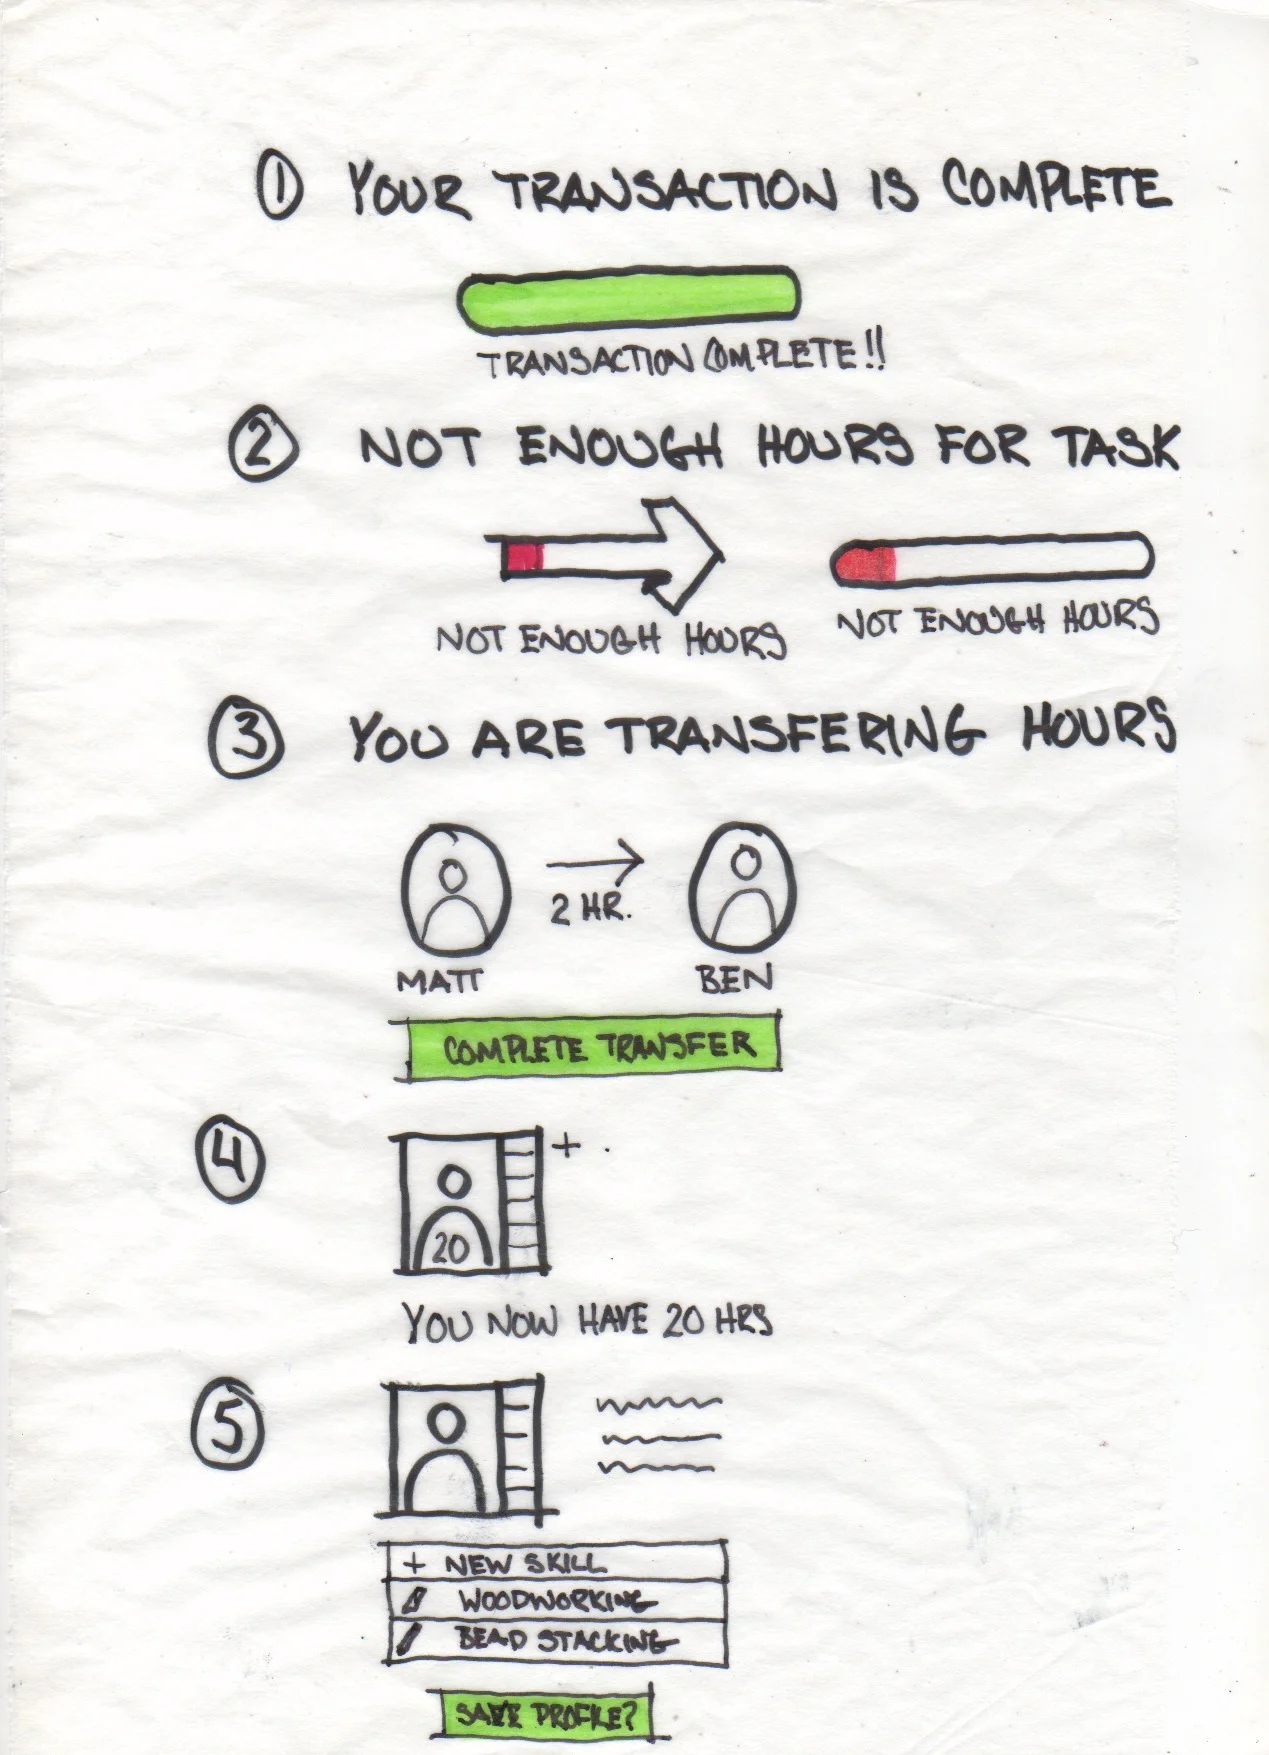 1 YOUR TRANSACTION IS COMPLETE
TRANSACTION COMPLETE!!
2 NOT ENOUGH HOURS FOR TASK
NOT ENOUGH HOURS
NOT ENOUGH HOURS
3 YOU ARE TRANSFERING HOURS
2 HR.
MATT
BEN
COMPLETE TRANSFER
4
+
20
YOU NOW HAVE 20 HRS
5
+ NEW SKILL
WOODWORKING
BEAD STACKING
SAVE PROFILE?